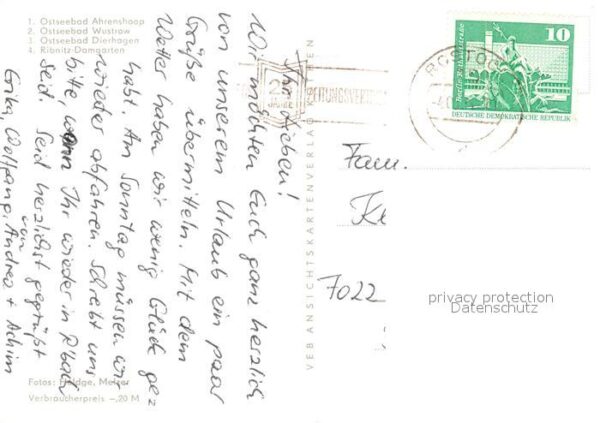 1. Ostseebad Ahrenshoop
2. Ostseebad Wustrow
3. Ostseebad Dierhagen
4. Ribnitz-Damgarten
Ihr Lieben!
Wir möchten Euch ganz herzlich
von unserem Urlaub ein paar
Grüße übermitteln. Mit dem
Wetter haben wir wenig Glück ge=
habt. Am Sonntag müssen wir
wieder abfahren. Schreibt uns
bitte, wann Ihr wieder in
seid. Seid herzlichst gegrüßt
von
Erika, Wolfgang, Andrea + Achim
Fotos: Meizer
Verbraucherpreis -,20 M
VEB ANSICHTSKARTENVERLAG
ROSTOC
25
JAHRE
ZEITUNGSVER
10
DEUTSCHE DEMOKRATISCHE REPUBLIK
Fam.
Ke
7022
privacy protection
Datenschutz